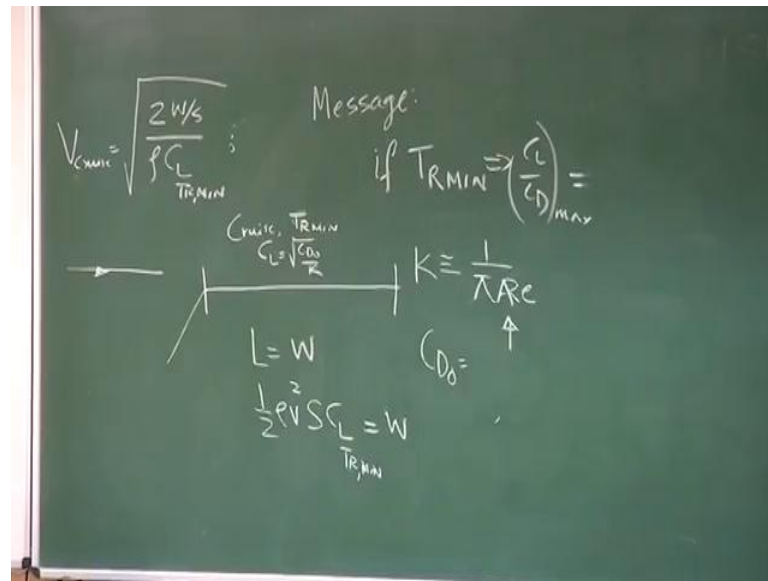 Message:
V_cruise = √(2 W/S / ρ C_L TR,MIN) ;
if T_RMIN ⇒ (C_L / C_D)_max =
Cruise, T_RMIN
C_L = √(C_D0 / K)
K ≡ 1 / πARe
L = W
C_D0 =
1/2 ρV² S C_L TR,MIN = W